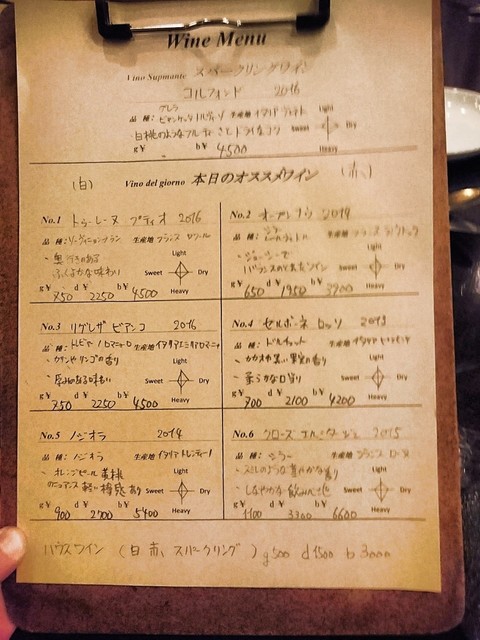 Wine Menu
Vino Supmante スパークリングワイン
コルフォンド 2016
品種: グレラ ビアンケッタ トレヴィジャーナ 生産地 イタリア ヴェネト
白桃のようなフルーティーさとドライなコク
Light
Sweet Dry
Heavy
g¥ b¥ 4500
(白) Vino del giorno 本日のオススメワイン (赤)
No.1 トゥーレーヌ プティオ 2016
品種: ソーヴィニヨンブラン 生産地 フランス ロワール
・奥行きのある
ふくよかな味わり
Light
Sweet Dry
Heavy
g¥ 750 d¥ 2250 b¥ 4500
No.2 2019
品種: 生産地 フランス
・ジューシーで
バランスのとれたワイン
Light
Sweet Dry
Heavy
g¥ 650 d¥ 1950 b¥ 3900
No.3 リグレザ ビアンコ 2016
品種: 生産地 イタリア エミリアロマーニャ
・カリンやリンゴの香り
・厚みのある味わい
Light
Sweet Dry
Heavy
g¥ 750 d¥ 2250 b¥ 4500
No.4 セルボーネ ロッソ 2015
品種: ドルチェット 生産地 イタリア
・カカオや黒い果実の香り
・柔らかな口当り
Light
Sweet Dry
Heavy
g¥ 700 d¥ 2100 b¥ 4200
No.5 ノジオラ 2014
品種: ノジオラ 生産地 イタリア トレンティーノ
・オレンジピール 黄桃
のニュアンス 軽い樽感あり
Light
Sweet Dry
Heavy
g¥ 900 d¥ 2700 b¥ 5400
No.6 クローズ エルミタージュ 2015
品種: シラー 生産地 フランス ローヌ
・スミレのような華やかな香り
・しなやかな飲み心地
Light
Sweet Dry
Heavy
g¥ 1100 d¥ 3300 b¥ 6600
ハウスワイン (白 赤、スパークリング) g500 d1500 b3000